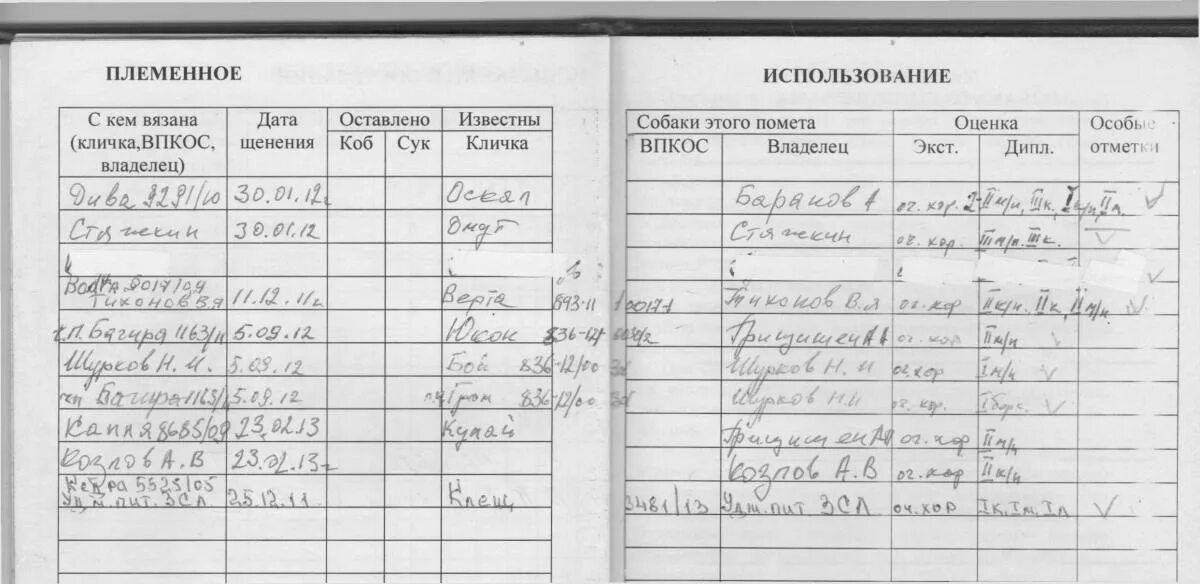 ПЛЕМЕННОЕ
С кем вязана (кличка,ВПКОС, владелец) Дата щенения Оставлено Коб Сук Известны Кличка
Дива 9291/10 30.01.12г Оскал
Стяжкин 30.01.12
Тихонов В.Я 11.12.11г Верта 893-11
ч.п. Багира 1163/11 5.09.12 Юкон 836-12/
Шурков Н.И. 5.09.12 Бой 836-12/00
чп Багира 1163/11 5.09.12 Гром 836-12/00
Капля 8685/09 23.02.13 Купай
Козлов А.В 23.02.13г
5523/05
Удм. пит. ЗСЛ 25.12.11 Клещ
ИСПОЛЬЗОВАНИЕ
Собаки этого помета ВПКОС Владелец Оценка Экст. Дипл. Особые отметки
Баранов А оч. хор.
Стяжкин оч. хор. III м/п. III к.
10017-1 Тихонов В.Я оч. хор
Грищишен АА оч. хор II м/п
Шурков Н.И оч. хор I м/п
Шурков Н.И оч. хор. I борс.
Грищишен АА оч. хор II м/п
Козлов А.В оч. хор II к/п
3481/13 Удм. пит. ЗСЛ оч. хор Iк, Iм, Iл